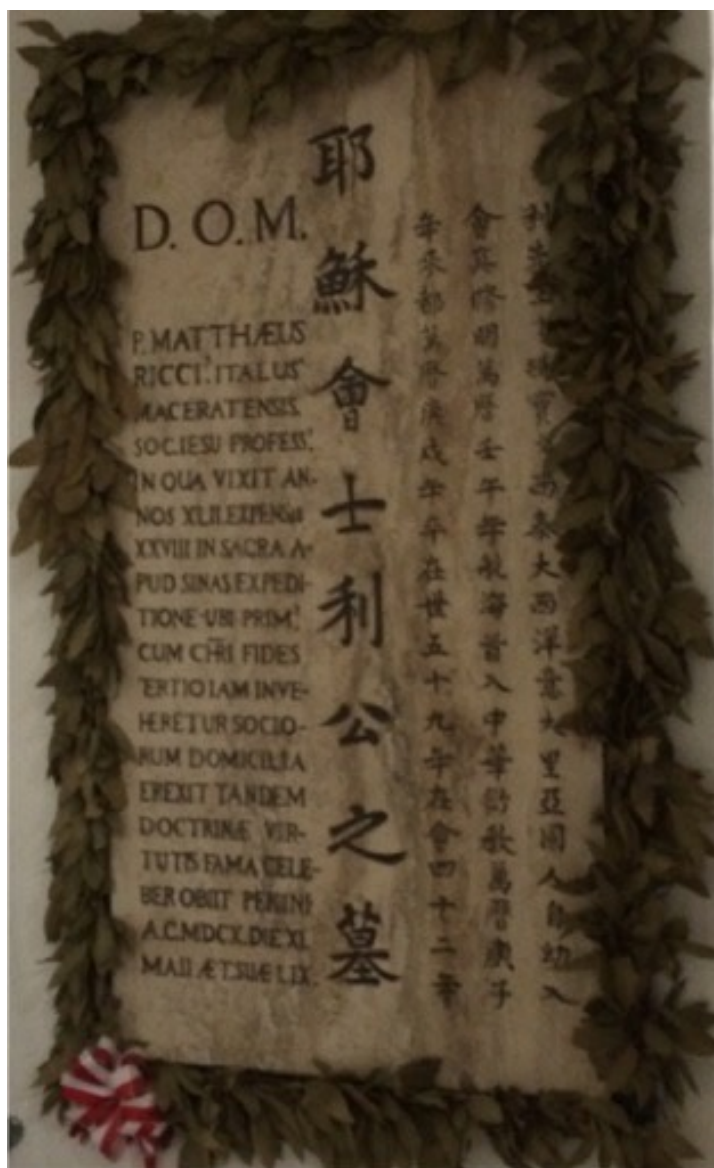 D. O. M.
P. MATTHÆUS
RICCI. ITALUS
MACERATENSIS
SOC. IESU PROFESS.
IN QUA VIXIT AN-
NOS XLII. EXPENSIS
XXVIII IN SACRA A-
PUD SINAS EXPEDI-
TIONE UBI PRIM.
CUM CHRI FIDES
TERTIO IAM INVE-
HERETUR SOCIO-
RUM DOMICILIA
EREXIT TANDEM
DOCTRINÆ VIR-
TUTIS FAMA CELE-
BER OBIIT PEKINI
A.C.MDCX.DIE XI.
MAII ÆT.SUÆ LIX.
耶穌會士利公之墓
利先生瑪竇西泰大西洋意大里亞國人自幼入
會真修明萬曆壬午年航海首入中華衍教萬曆庚子
年來都萬曆庚戌年卒在世五十九年在會四十二年